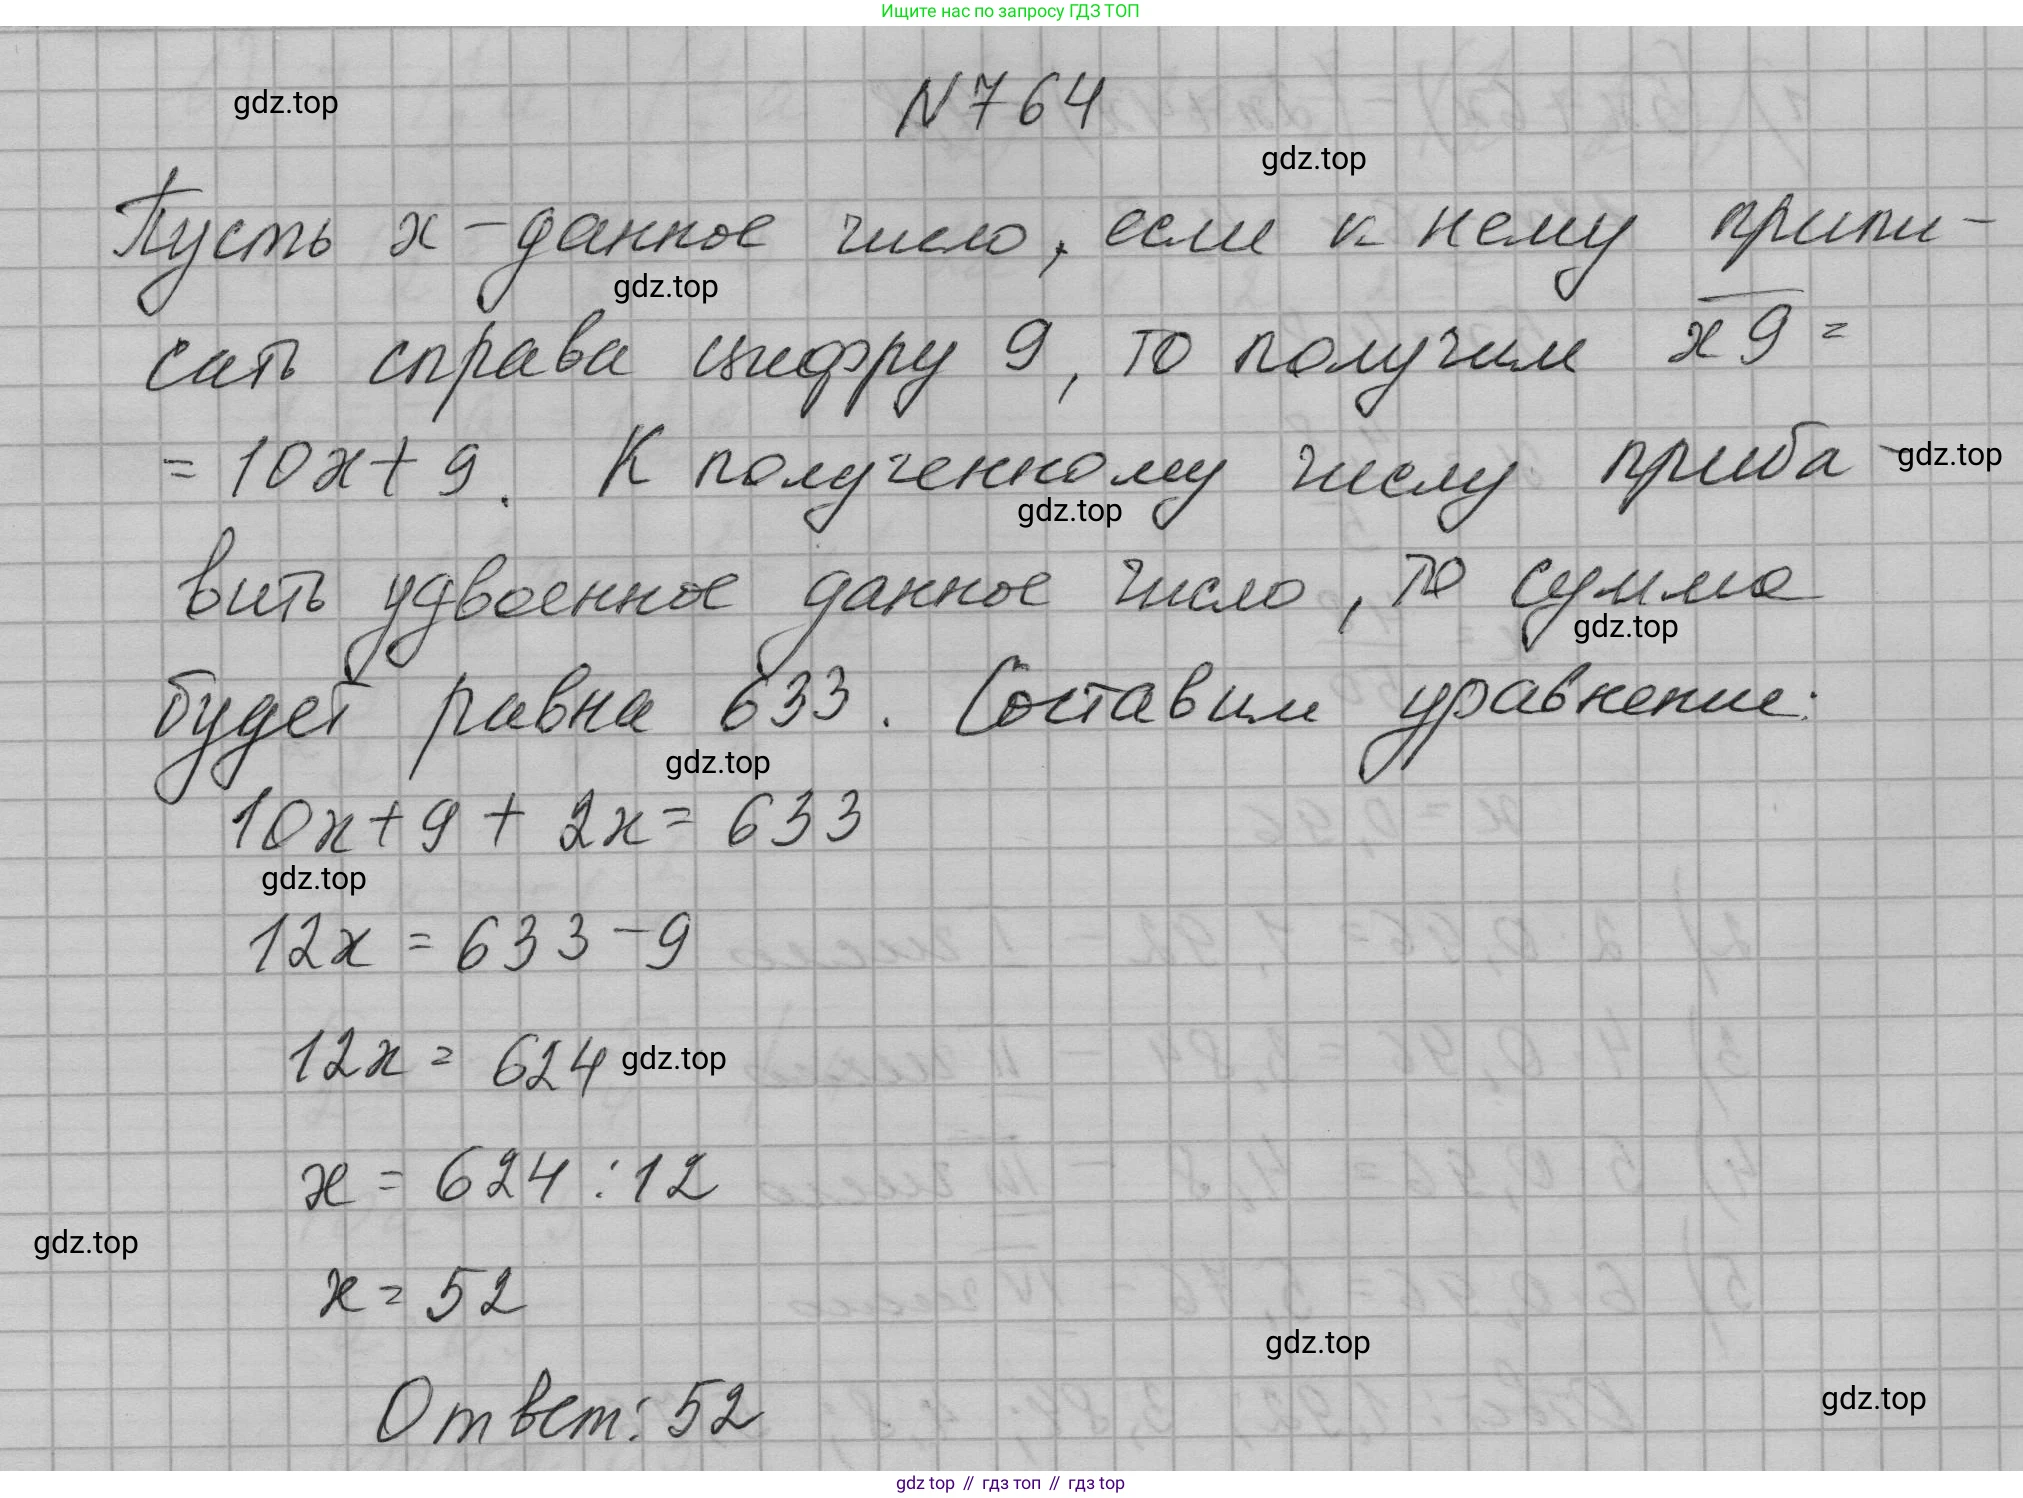 Ищите нас по запросу ГДЗ ТОП
N 764
gdz.top
gdz.top
Пусть x - данное число, если к нему припи-
gdz.top
сать справа цифру 9, то получим x9 =
= 10x + 9. К полученному числу приба-
gdz.top
gdz.top
вить удвоенное данное число, то сумма
gdz.top
будет равна 633. Составим уравнение:
gdz.top
10x + 9 + 2x = 633
gdz.top
12x = 633 - 9
12x = 624
gdz.top
x = 624 : 12
gdz.top
x = 52
gdz.top
gdz.top
Ответ: 52
gdz.top // гдз топ // гдз top